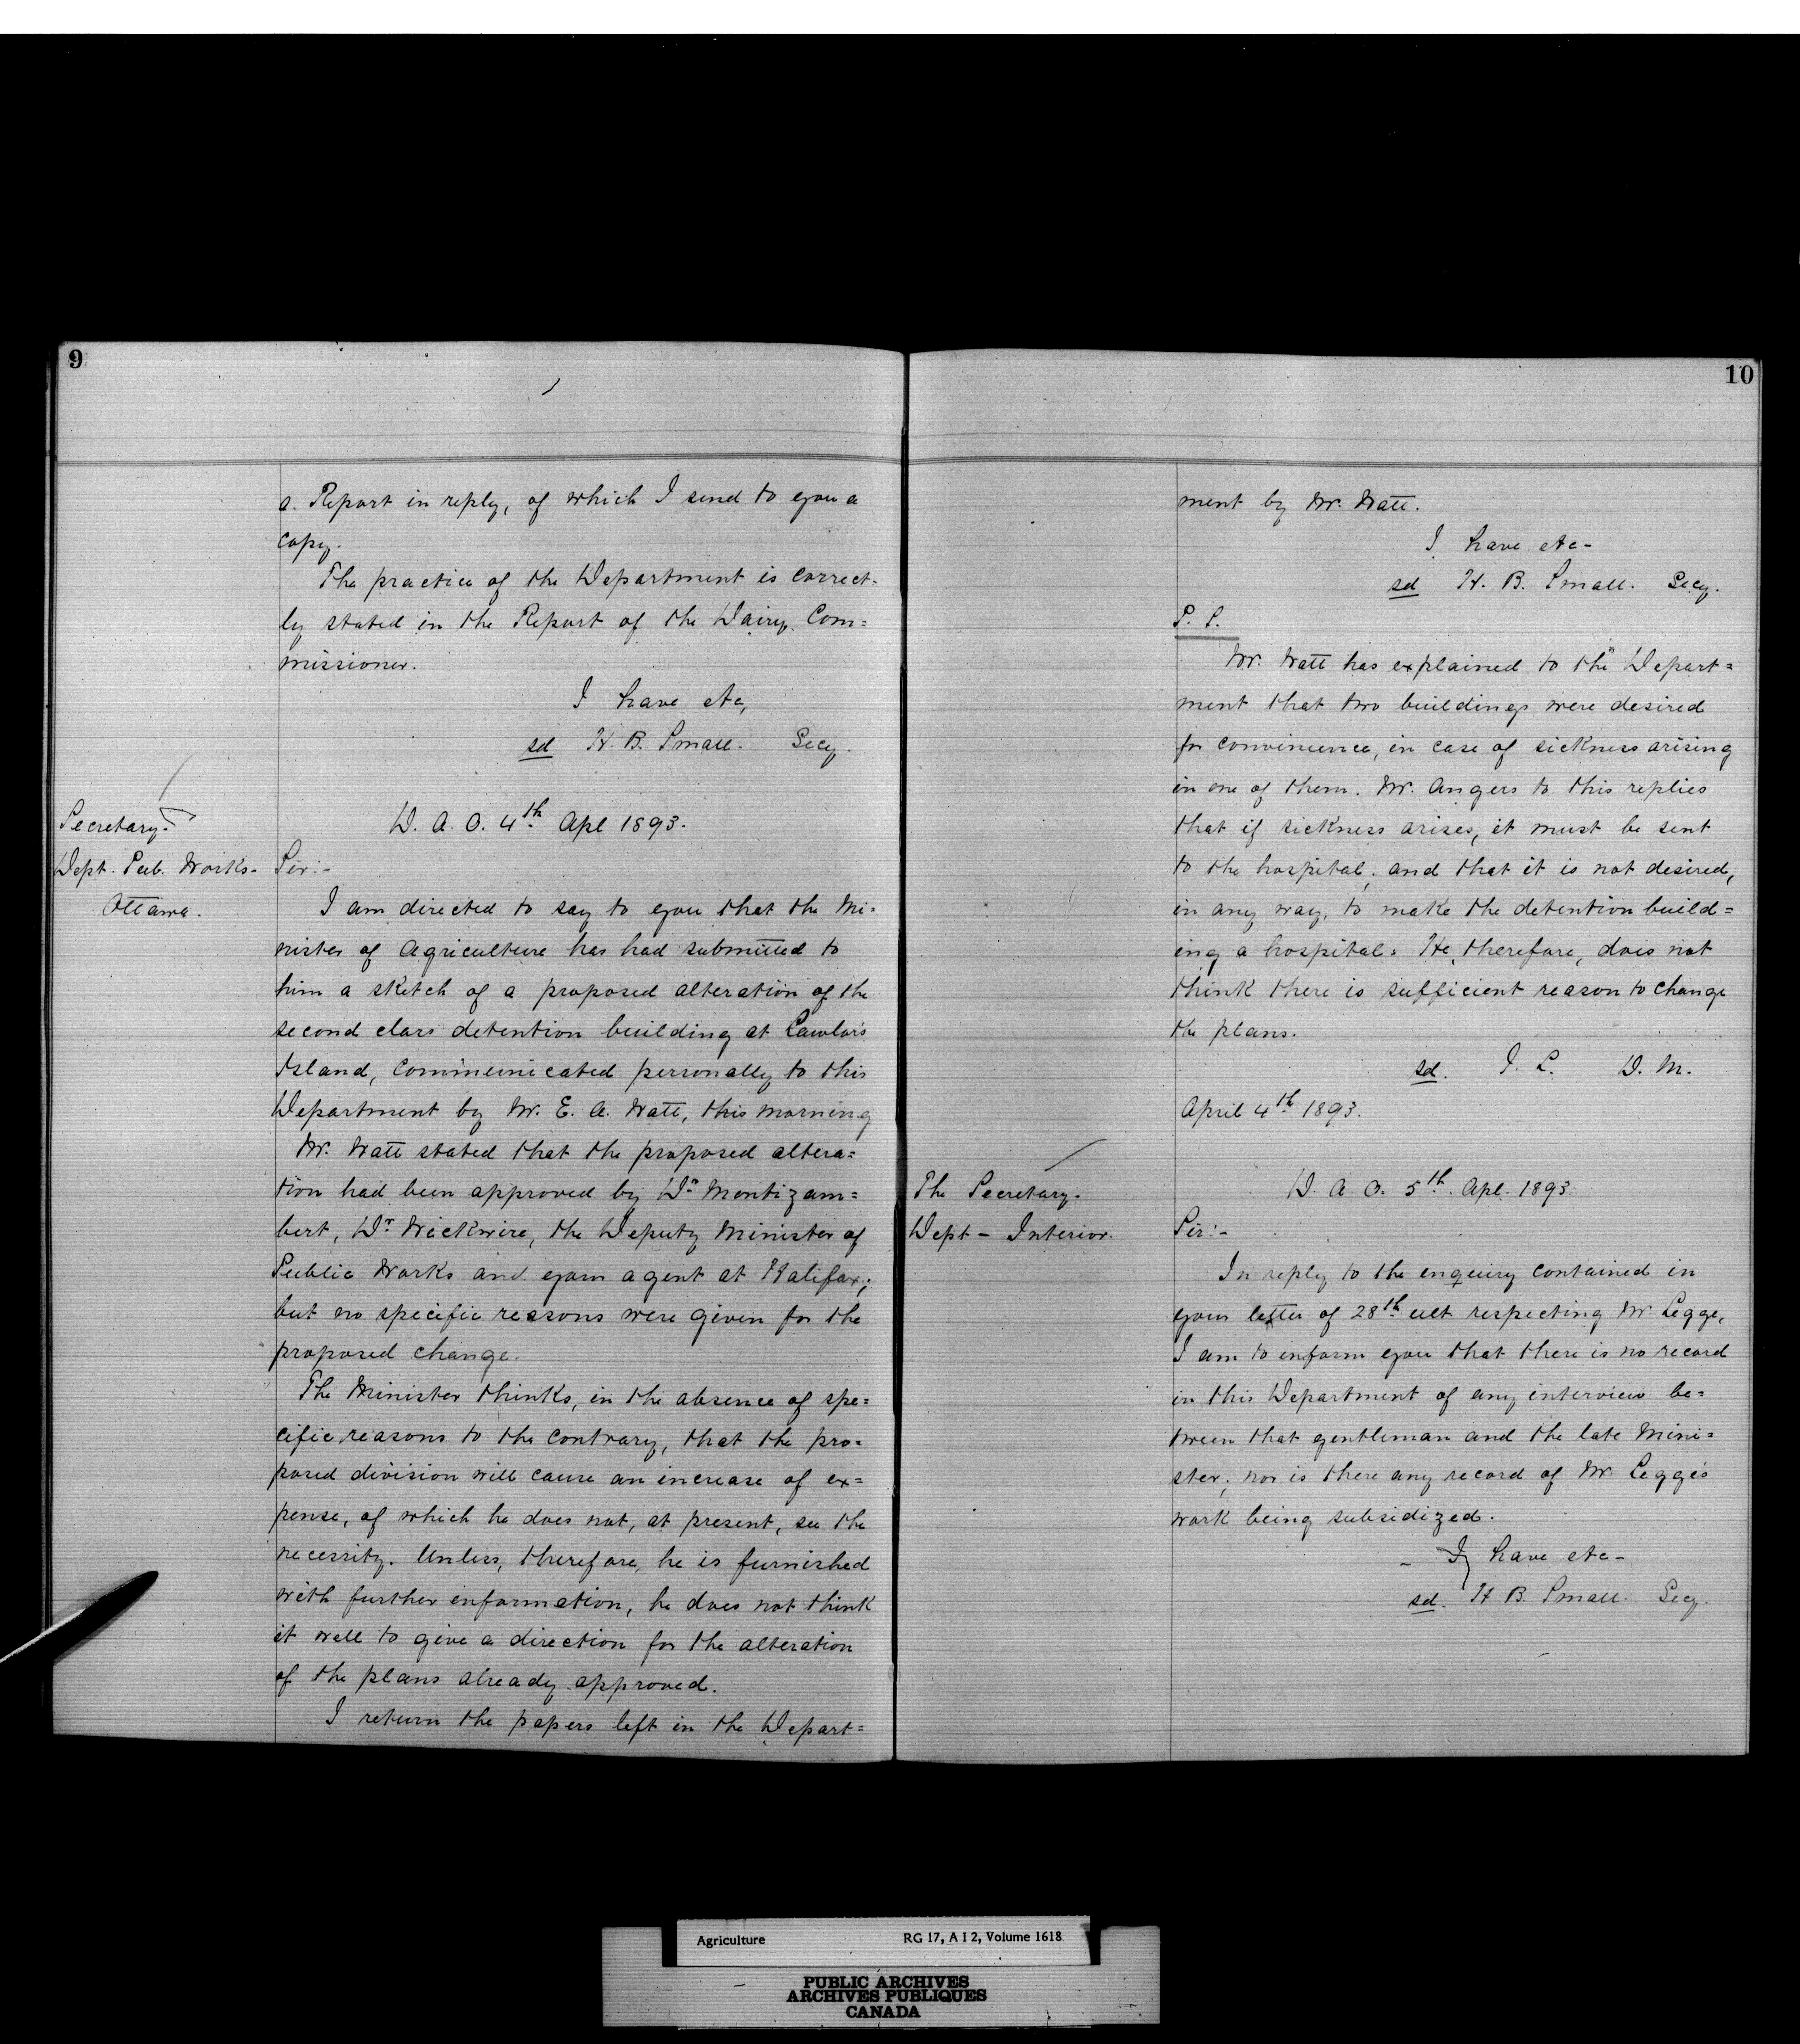 9
a Report in reply, of which I send to you a
copy.
The practice of the Department is correct-
ly stated in the Report of the Dairy Com=
missioner.
I have etc,
sd H. B. Small. Secy.
Secretary.
Dept. Pub. Works-
Ottawa.
D. A. O. 4th Apl 1893.
Sir:-
I am directed to say to you that the Mi-
nister of Agriculture has had submitted to
him a sketch of a proposed alteration of the
second class detention building at Lawlor's
Island, communicated personally to this
Department by Mr. E. A. Watt, this morning
Mr. Watt stated that the proposed altera=
tion had been approved by Dr Montizam=
bert, Dr Wickwire, the Deputy Minister of
Public Works and your agent at Halifax;
but no specific reasons were given for the
proposed change.
The Minister thinks, in the absence of spe=
cific reasons to the contrary, that the pro=
posed division will cause an increase of ex=
pense, of which he does not, at present, see the
necessity. Unless, therefore, he is furnished
with further information, he does not think
it well to give a direction for the alteration
of the plans already approved.
I return the papers left in the Depart=
10
ment by Mr. Watt.
I have etc-
sd H. B. Small. Secy.
P. S.
Mr. Watt has explained to the Depart=
ment that two buildings were desired
for convenience, in case of sickness arising
in one of them. Mr. Angers to this replies
that if sickness arises, it must be sent
to the hospital; and that it is not desired,
in any way, to make the detention build=
ing a hospital. He, therefore, does not
think there is sufficient reason to change
the plans.
sd. J. L. D. M.
April 4th 1893.
The Secretary.
Dept - Interior.
D. A. O. 5th. Apl. 1893.
Sir:-
In reply to the enquiry contained in
your letter of 28th ult respecting Mr Legge,
I am to inform you that there is no record
in this Department of any interview be=
tween that gentleman and the late Mini=
ster; nor is there any record of Mr. Legge's
work being subsidized.
I have etc-
sd. H B. Small. Secy.
Agriculture RG 17, A I 2, Volume 1618
PUBLIC ARCHIVES
ARCHIVES PUBLIQUES
CANADA